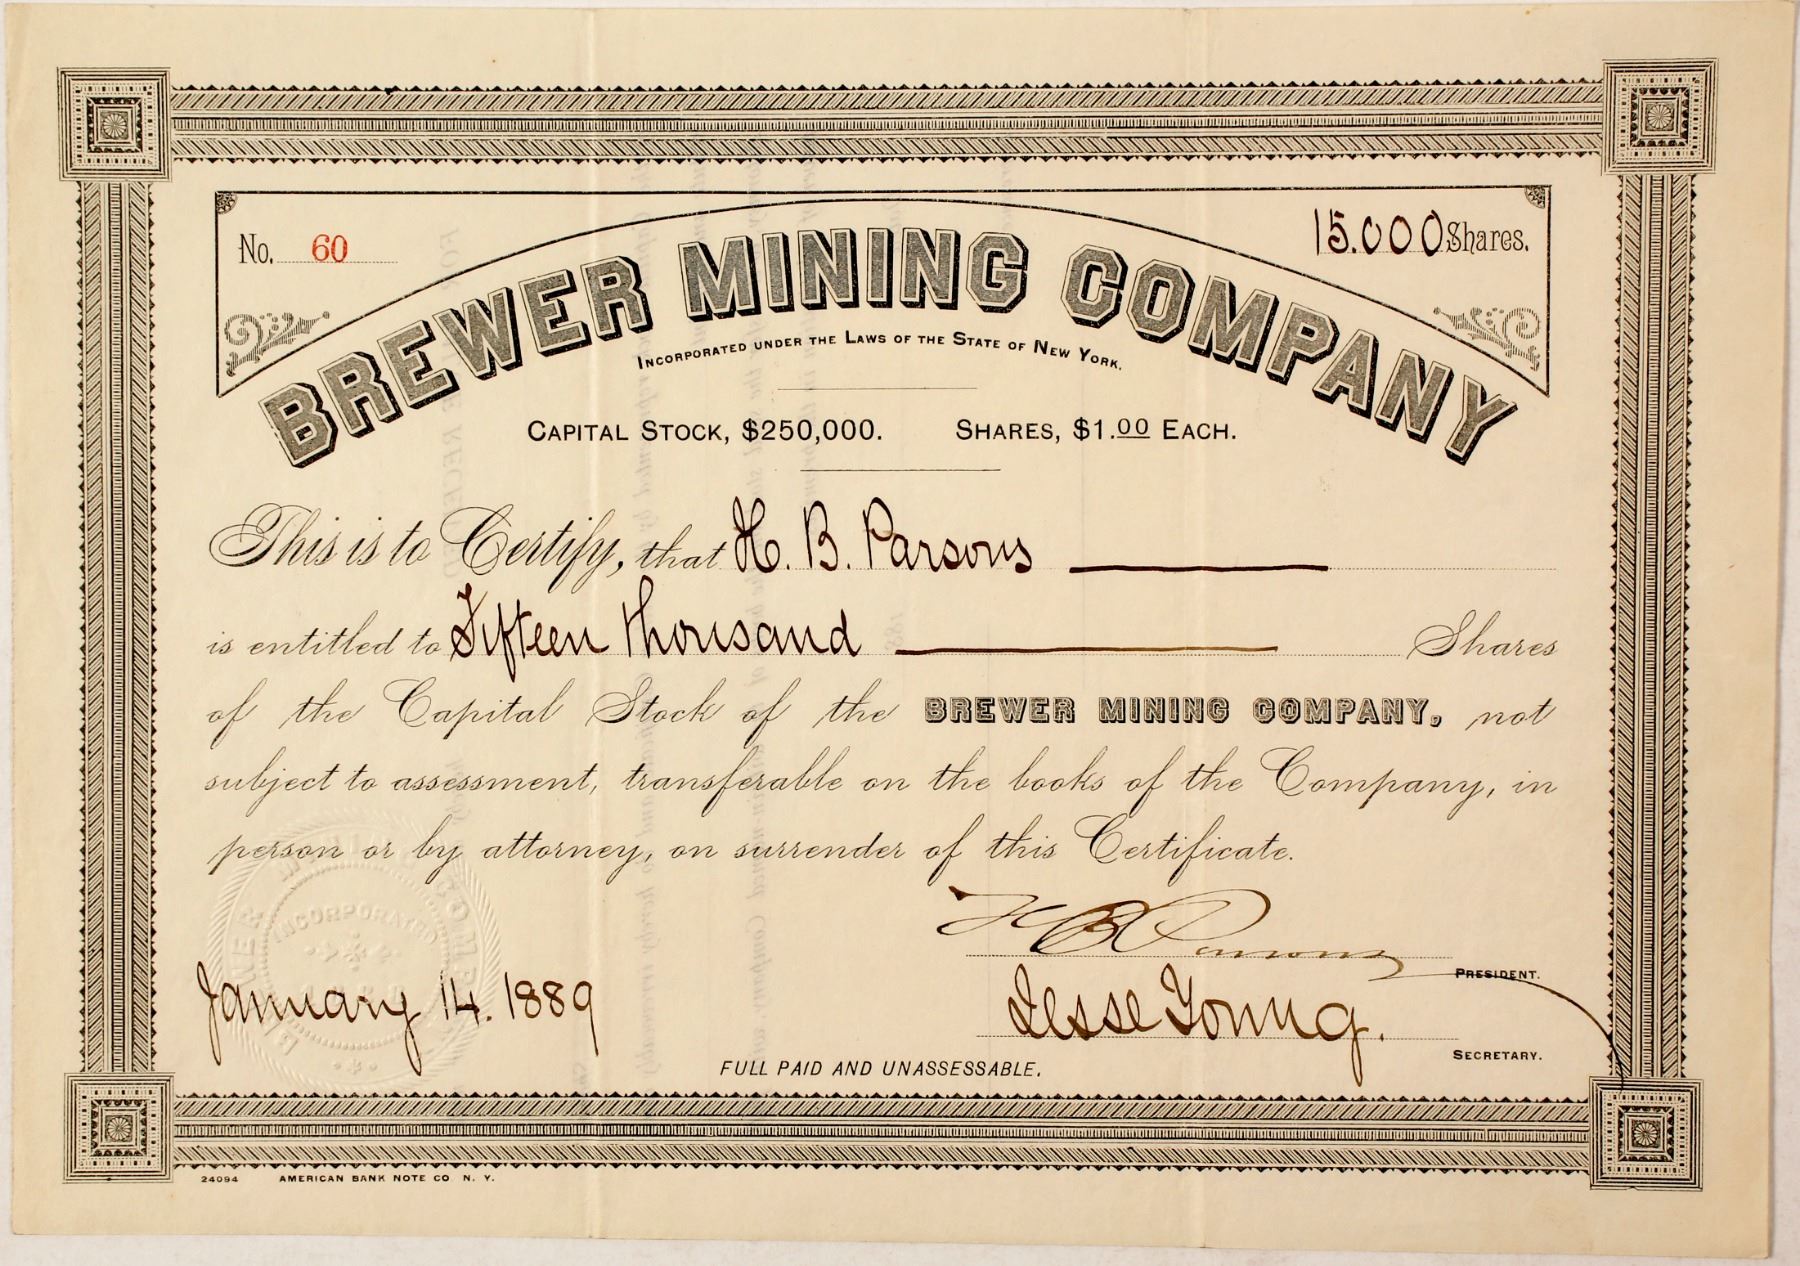 No. 60
15.000 Shares.
BREWER MINING COMPANY
INCORPORATED UNDER THE LAWS OF THE STATE OF NEW YORK.
CAPITAL STOCK, $250,000. SHARES, $1.00 EACH.
This is to Certify, that H. B. Parsons
is entitled to Fifteen Thousand Shares
of the Capital Stock of the BREWER MINING COMPANY, not
subject to assessment, transferable on the books of the Company, in
person or by attorney, on surrender of this Certificate.
H B Parsons
PRESIDENT.
January 14. 1889
Jesse Young.
SECRETARY.
FULL PAID AND UNASSESSABLE.
INCORPORATED
24094 AMERICAN BANK NOTE CO. N. Y.